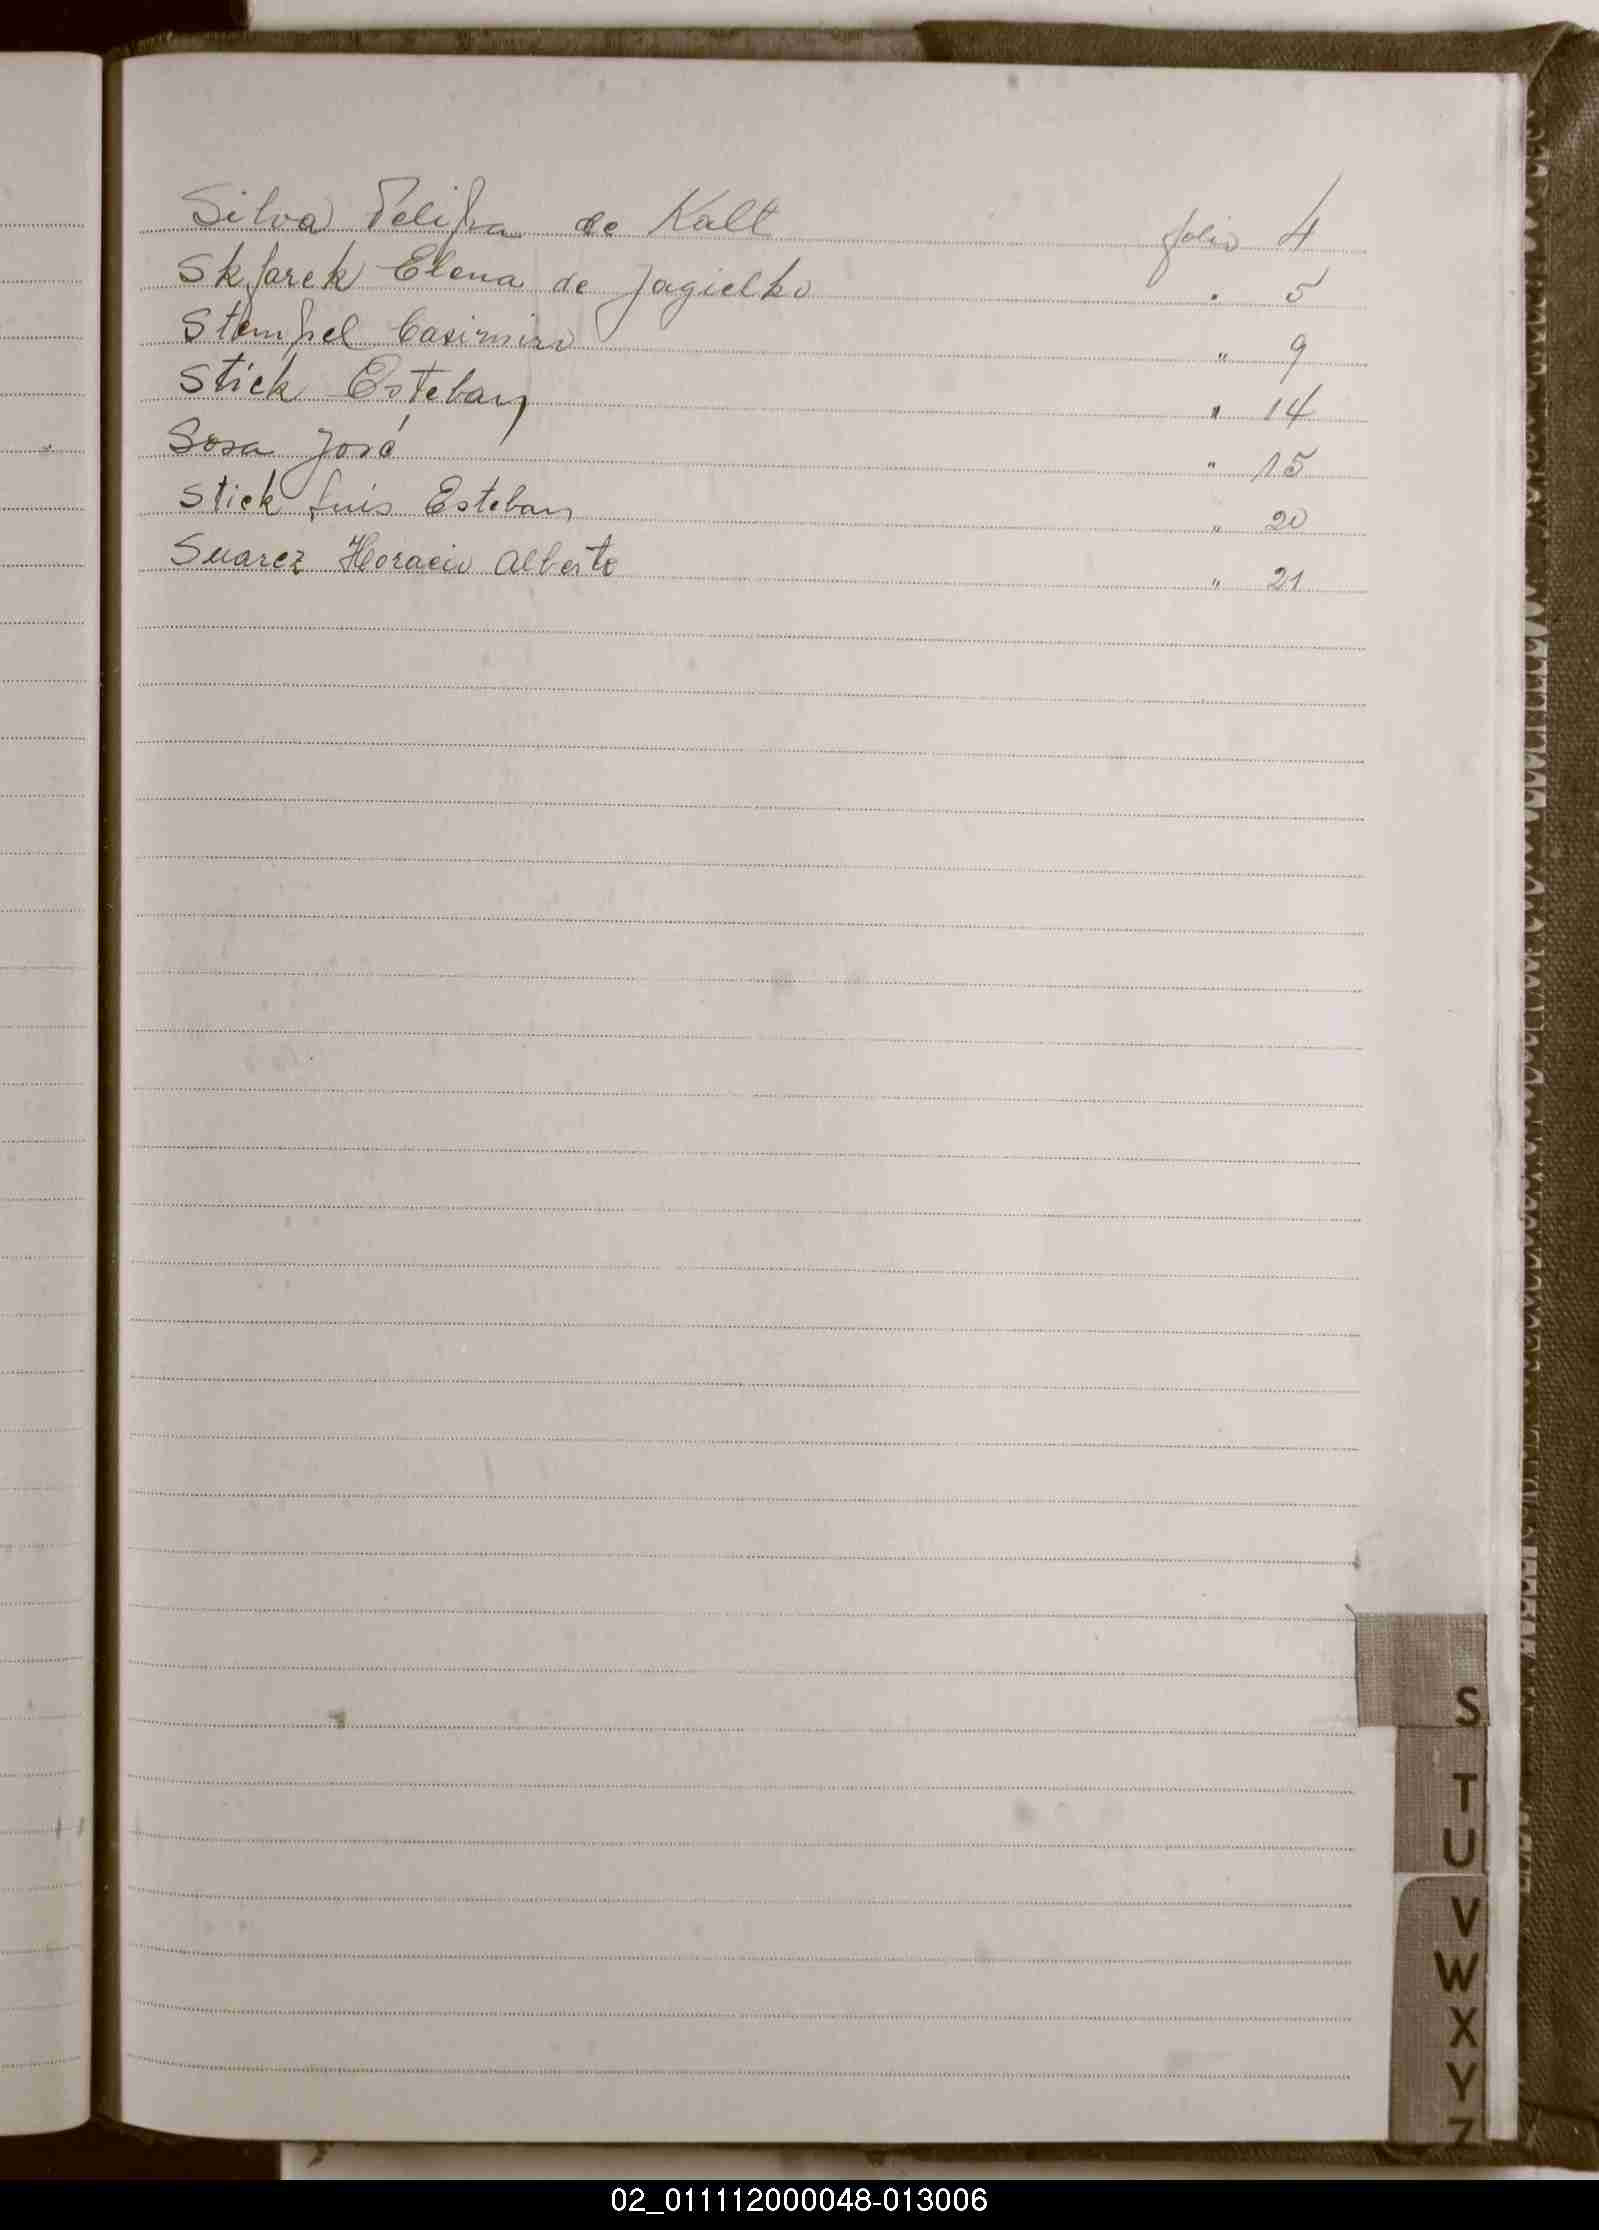 Silva Felipa de Kalt folio 4
Skfarek Elena de Jagielko " 5
Stempel Casimiro " 9
Stick Esteban " 14
Sosa José " 15
Stick Luis Esteban " 20
Suarez Horacio Alberto " 21
S
T
U
V
W
X
Y
Z
02_011112000048-013006